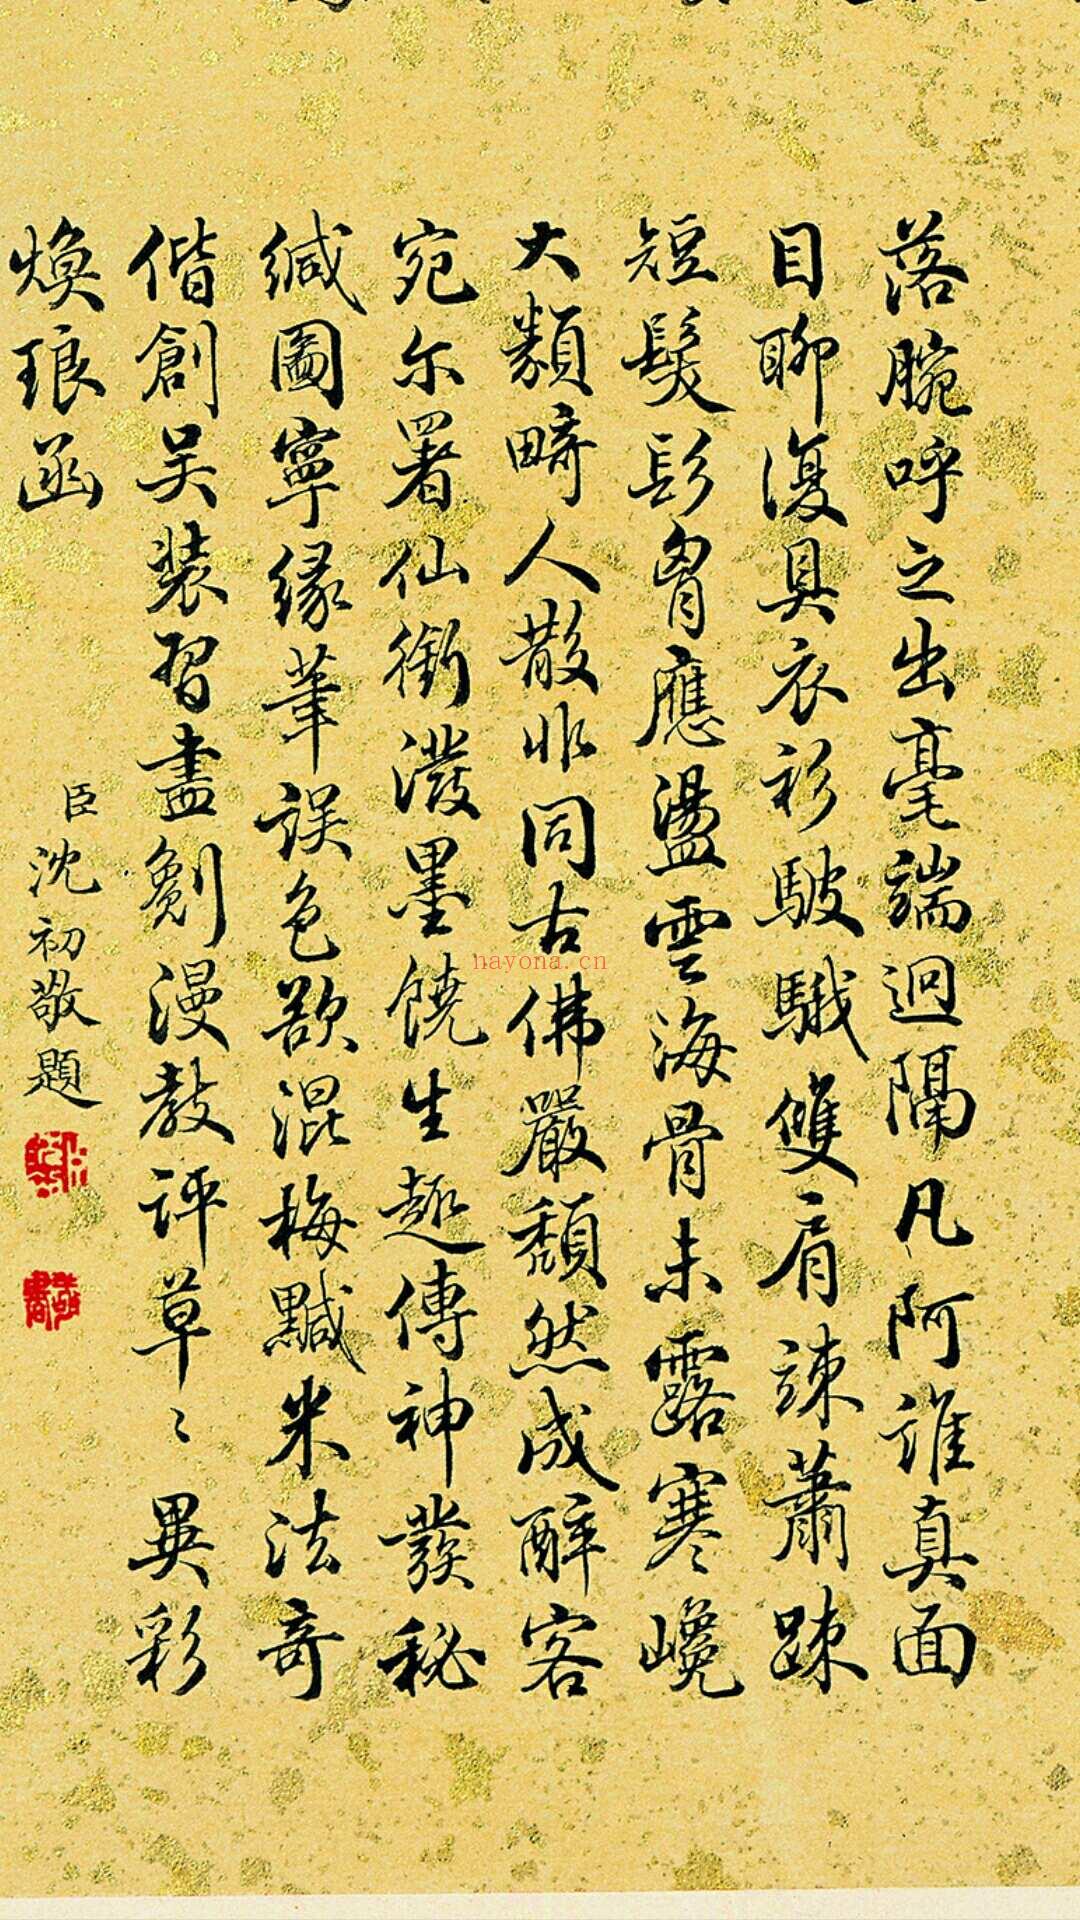 落腕呼之出毫端迥隔凡阿誰真面
目聊復具衣衫駊騀雙肩竦蕭疎
短髮髟胷應盪雲海骨未露寒巉
大類畸人散非同古佛嚴頹然成醉客
宛尔署仙銜潑墨饒生趣傳神發秘
緘圖寧緣筆誤色欲混梅黬米法奇
偕創吴装習盡劖漫教評草〻異彩
煥琅函
臣沈初敬題
nayona.cn